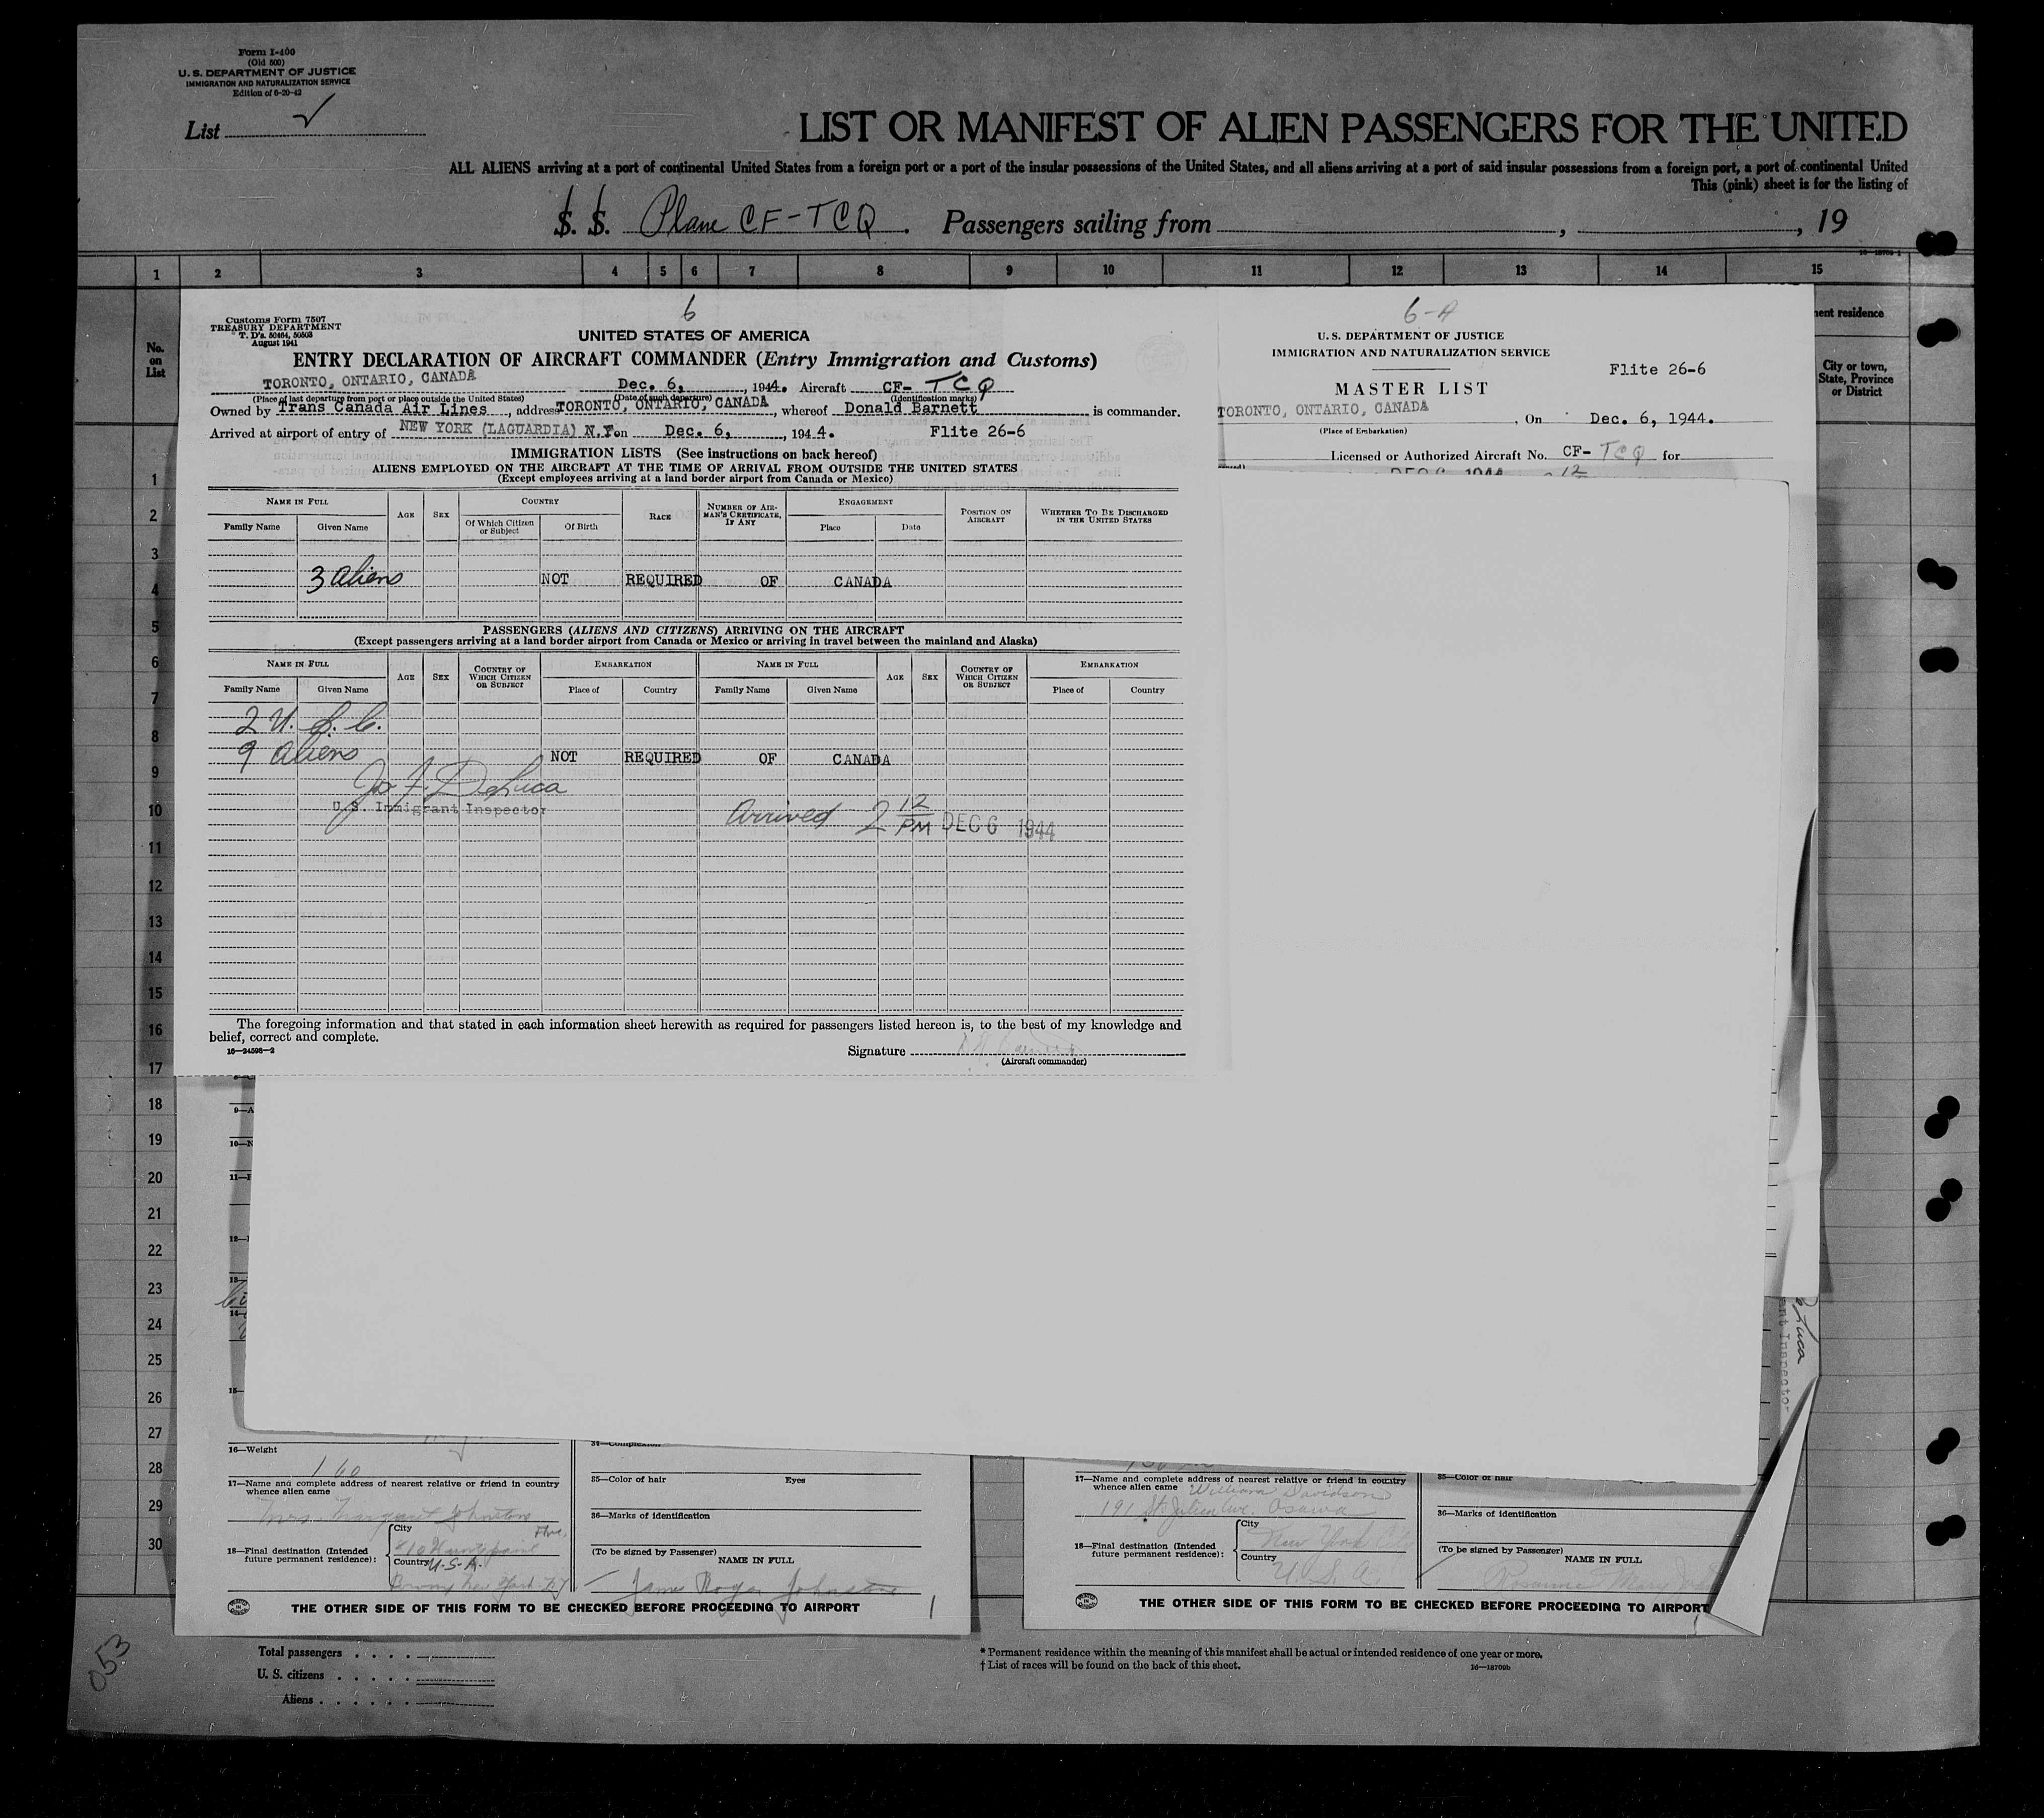 Form I-400
(Old 500)
U. S. DEPARTMENT OF JUSTICE
IMMIGRATION AND NATURALIZATION SERVICE
Edition of 6-20-42
List
LIST OR MANIFEST OF ALIEN PASSENGERS FOR THE UNITED
ALL ALIENS arriving at a port of continental United States from a foreign port or a port of the insular possessions of the United States, and all aliens arriving at a port of said insular possessions from a foreign port, a port of continental United
This (pink) sheet is for the listing of
S. S. Plane CF-TCQ. Passengers sailing from , , 19
1 2 3 4 5 6 7 8 9 10 11 12 13 14 15
No. on List
ent residence
City or town, State, Province or District
6
Customs Form 7507
TREASURY DEPARTMENT
T. D's. 50464, 50503
August 1941
UNITED STATES OF AMERICA
ENTRY DECLARATION OF AIRCRAFT COMMANDER (Entry Immigration and Customs)
TORONTO, ONTARIO, CANADA Dec. 6, , 1944. Aircraft CF- TCQ
(Place of last departure from port or place outside the United States) (Date of such departure) (Identification marks)
Owned by Trans Canada Air Lines , address TORONTO, ONTARIO, CANADA , whereof Donald Barnett is commander.
Arrived at airport of entry of NEW YORK (LAGUARDIA) N.Y. on Dec. 6, , 194 4. Flite 26-6
IMMIGRATION LISTS (See instructions on back hereof)
ALIENS EMPLOYED ON THE AIRCRAFT AT THE TIME OF ARRIVAL FROM OUTSIDE THE UNITED STATES
(Except employees arriving at a land border airport from Canada or Mexico)
NAME IN FULL AGE SEX COUNTRY RACE NUMBER OF AIRMAN'S CERTIFICATE, IF ANY ENGAGEMENT POSITION ON AIRCRAFT WHETHER TO BE DISCHARGED IN THE UNITED STATES
Family Name Given Name Of Which Citizen or Subject Of Birth Place Date
3 aliens NOT REQUIRED OF CANADA
PASSENGERS (ALIENS AND CITIZENS) ARRIVING ON THE AIRCRAFT
(Except passengers arriving at a land border airport from Canada or Mexico or arriving in travel between the mainland and Alaska)
NAME IN FULL AGE SEX COUNTRY OF WHICH CITIZEN OR SUBJECT EMBARKATION NAME IN FULL AGE SEX COUNTRY OF WHICH CITIZEN OR SUBJECT EMBARKATION
Family Name Given Name Place of Country Family Name Given Name Place of Country
2 U. S. C.
9 aliens NOT REQUIRED OF CANADA
Jo F. DeLuca
U.S. Immigrant Inspector
Arrived 2 12 PM DEC 6 1944
The foregoing information and that stated in each information sheet herewith as required for passengers listed hereon is, to the best of my knowledge and
belief, correct and complete.
16—24598-2
Signature
(Aircraft commander)
6-A
U. S. DEPARTMENT OF JUSTICE
IMMIGRATION AND NATURALIZATION SERVICE
Flite 26-6
MASTER LIST
TORONTO, ONTARIO, CANADA , On Dec. 6, 1944.
(Place of Embarkation)
Licensed or Authorized Aircraft No. CF- TCQ for
DEC 6 1944 2 12
1
2
3
4
5
6
7
8
9
10
11
12
13
14
15
16
17
18
19
20
21
22
23
24
25
26
27
28
29
30
9—A
10—N
11—
12—
13—
14—
15—
16—Weight
160
17—Name and complete address of nearest relative or friend in country
whence alien came
Mrs. Margaret Johnston
18—Final destination (Intended future permanent residence):
City
Country U.S.A.
34—Complexion
35—Color of hair Eyes
36—Marks of identification
(To be signed by Passenger)
NAME IN FULL
James Roger Johnston
THE OTHER SIDE OF THIS FORM TO BE CHECKED BEFORE PROCEEDING TO AIRPORT
1
17—Name and complete address of nearest relative or friend in country
whence alien came William Davidson
191 St Julien Ave. Osawa
18—Final destination (Intended future permanent residence):
City New York
Country U. S. A.
35—Color of hair
36—Marks of identification
(To be signed by Passenger)
NAME IN FULL
Mary
THE OTHER SIDE OF THIS FORM TO BE CHECKED BEFORE PROCEEDING TO AIRPORT
Luca
ant Inspector
053
Total passengers . . . .
U. S. citizens . . . . .
Aliens . . . . . .
* Permanent residence within the meaning of this manifest shall be actual or intended residence of one year or more.
† List of races will be found on the back of this sheet.
16—18709b